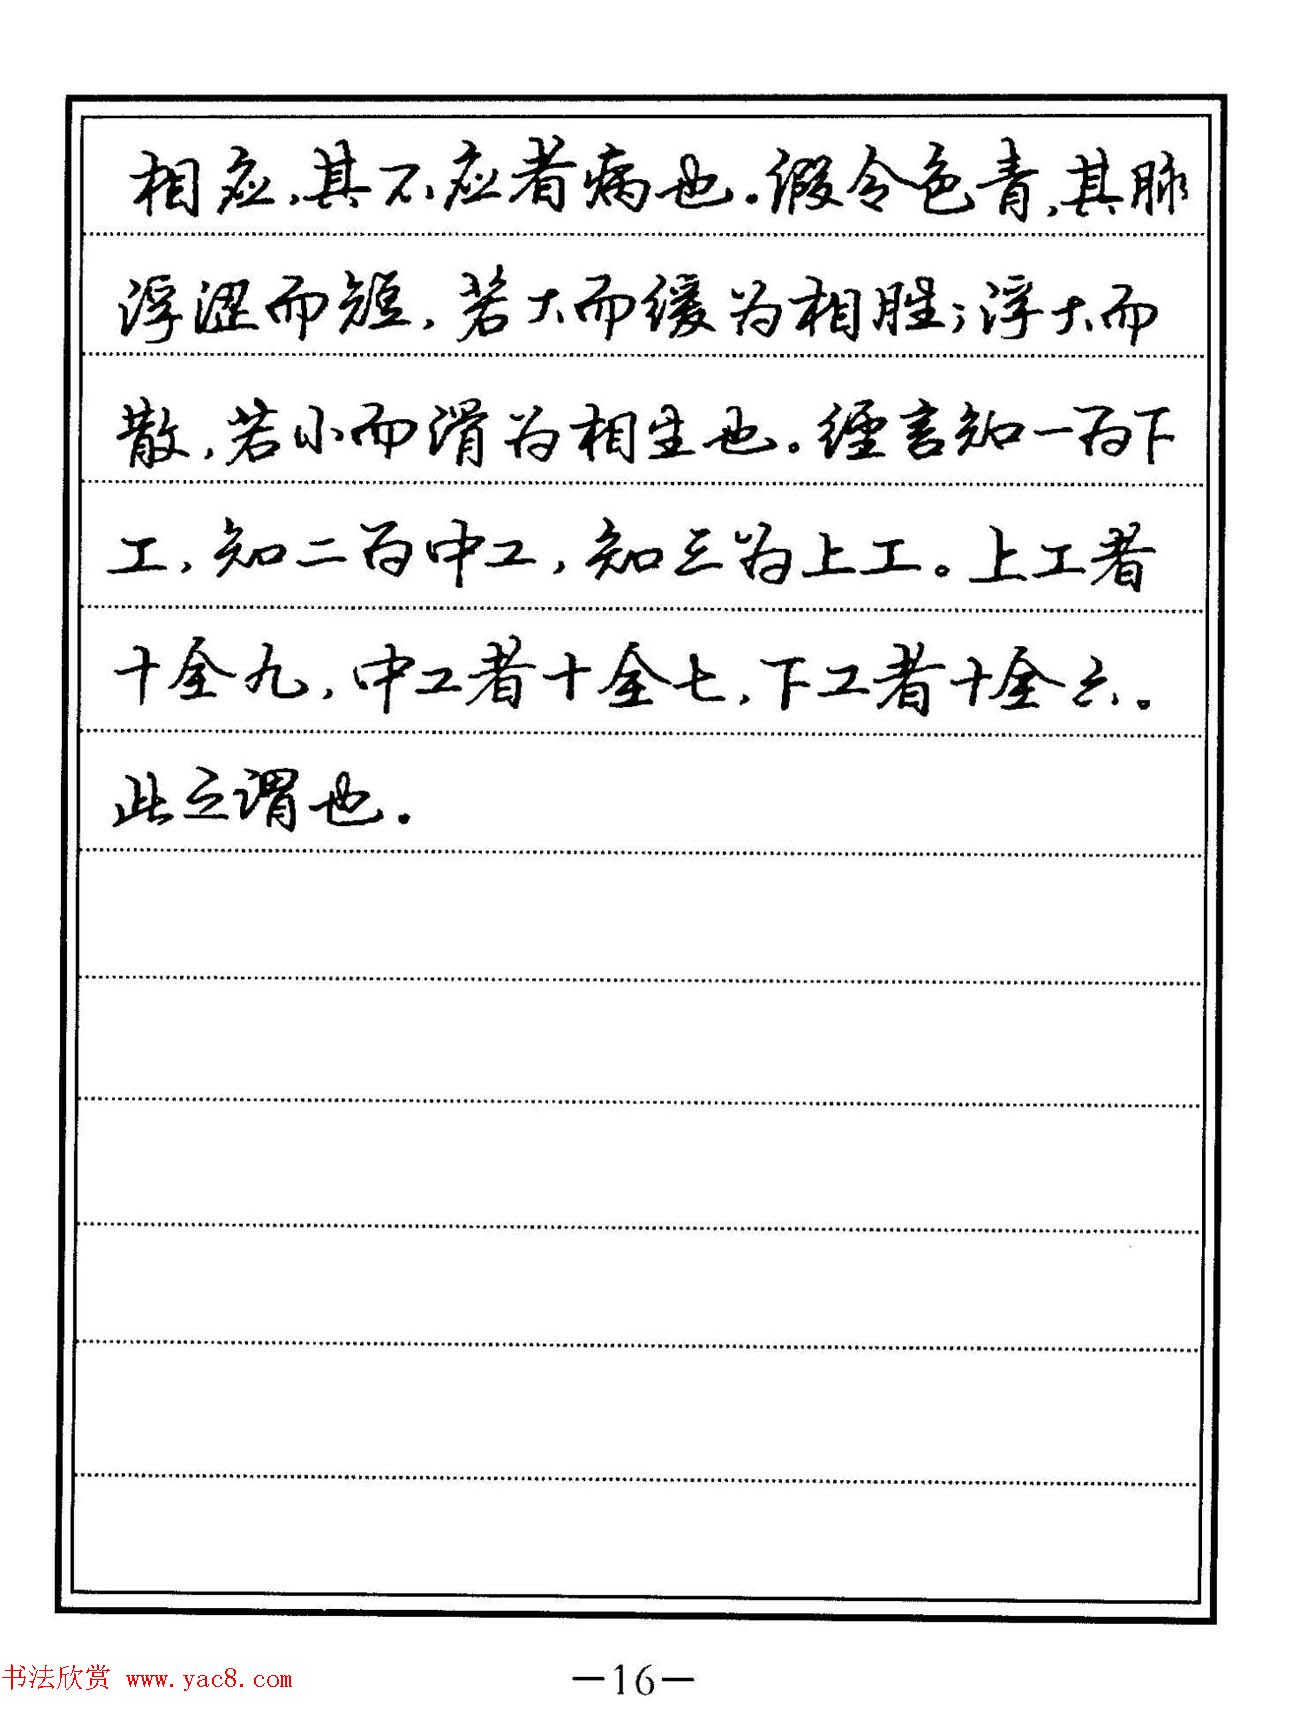 相应，其不应者病也。假令色青，其脉
浮涩而短，若大而缓为相胜；浮大而
散，若小而滑为相生也。经言知一为下
工，知二为中工，知三为上工。上工者
十全九，中工者十全七，下工者十全六。
此之谓也。
书法欣赏 www.yac8.com
—16—